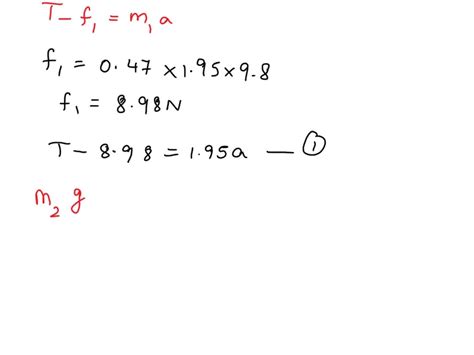 T - f₁ = m₁ a
f₁ = 0.47 × 1.95 × 9.8
f₁ = 8.98 N
T - 8.98 = 1.95a — ①
m₂ g